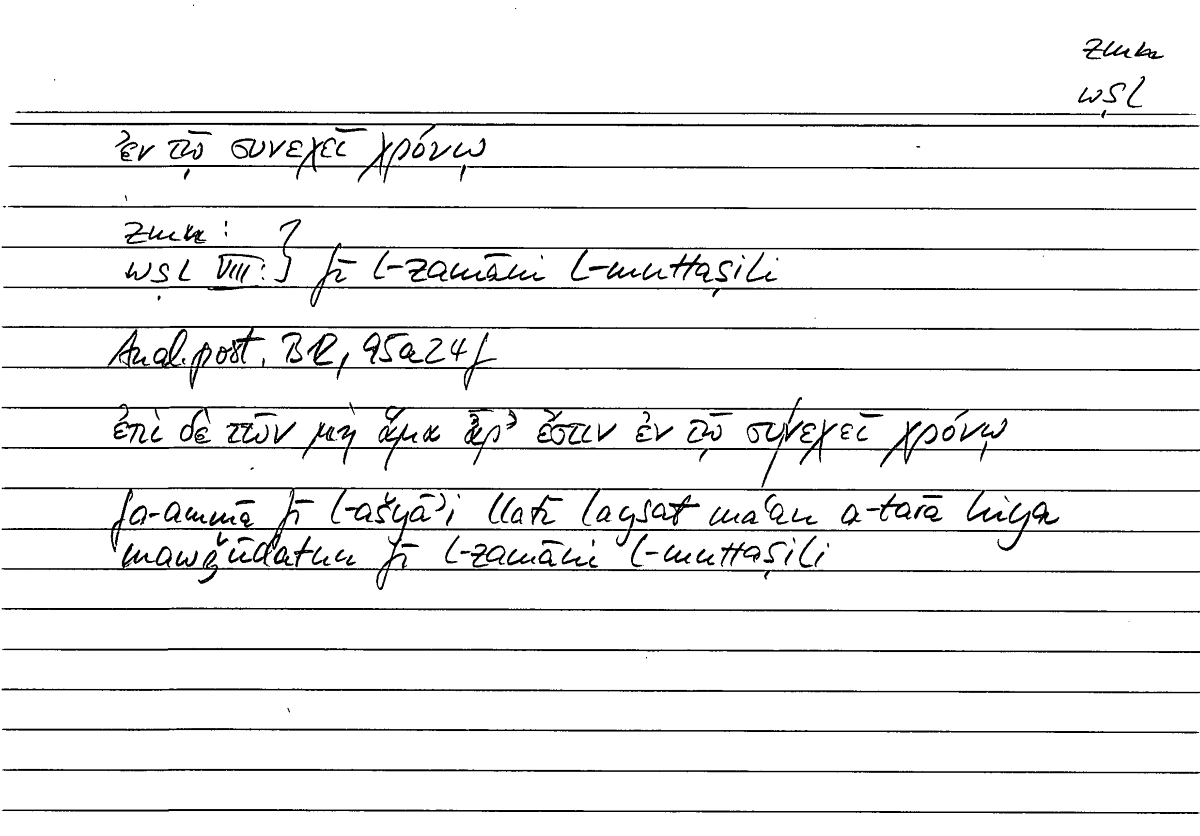 zmn
wṣl
ἐν τῷ συνεχεῖ χρόνῳ
zmn :
wṣl VIII : } fī l-zamāni l-muttaṣili
Anal. post. B12, 95a24f
ἐπὶ δὲ τῶν μὴ ἅμα ἆρ’ ἔστιν ἐν τῷ συνεχεῖ χρόνῳ
fa-ammā fī l-ašyāʾi llatī laysat maʿan a-tarā hiya
mawǧūdatun fī l-zamāni l-muttaṣili